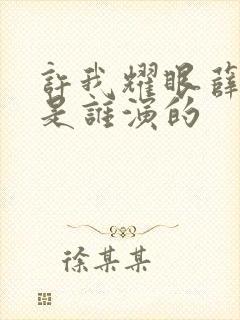 許我耀眼薛
是誰演的
徐某某